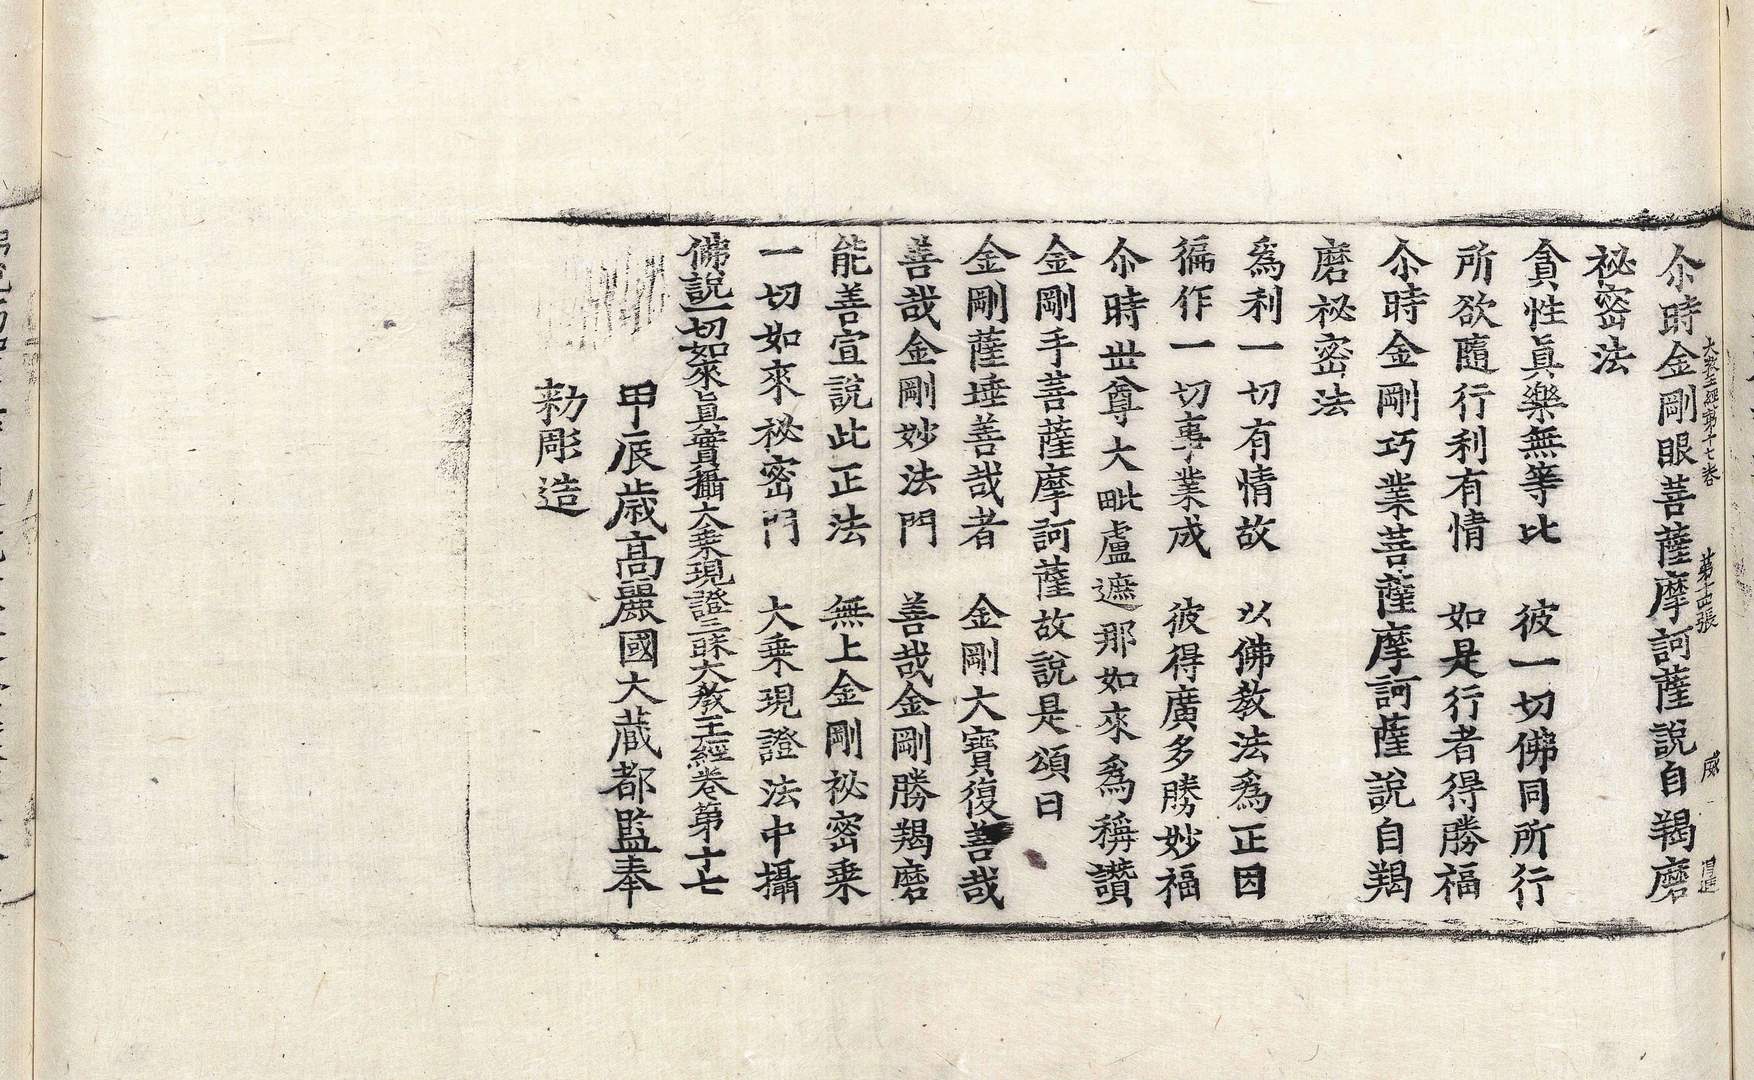 大教王經第十七卷　第十四張　威
尒時金剛眼菩薩摩訶薩說自羯磨
祕密法
貪性眞樂無等比　彼一切佛同所行
所欲隨行利有情　如是行者得勝福
尒時金剛巧業菩薩摩訶薩說自羯
磨祕密法
爲利一切有情故　以佛教法爲正因
徧作一切事業成　彼得廣多勝妙福
尒時世尊大毗盧遮那如來爲稱讚
金剛手菩薩摩訶薩故說是頌曰
金剛薩埵善哉者　金剛大寶復善哉
善哉金剛妙法門　善哉金剛勝羯磨
能善宣說此正法　無上金剛祕密乘
一切如來祕密門　大乘現證法中攝
佛說一切如來眞實攝大乘現證三昧大教王經卷第十七
甲辰歲高麗國大藏都監奉
勅彫造